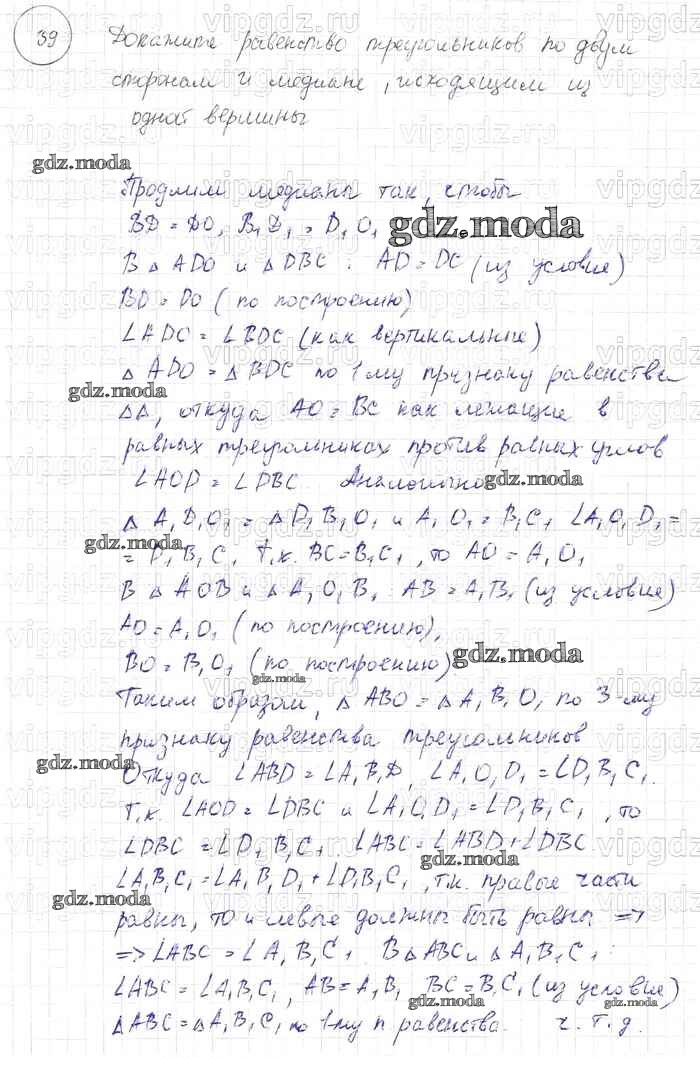 39
Докажите равенство треугольников по двум
сторонам и медиане, исходящим из
одной вершины
gdz.moda
Продлим медианы так, чтобы
BD = DO, B₁D₁ = D₁O₁
gdz.moda
В △ ADO и △ DBC : AD = DC (из условия)
BD = DO (по построению)
∠ADO = ∠BDC (как вертикальные)
△ ADO = △ BDC по 1му признаку равенства
gdz.moda
△△, откуда AO = BC как лежащие в
равных треугольниках против равных углов
∠AOD = ∠DBC. Аналогично
gdz.moda
△ A₁D₁O₁ = △ D₁B₁O₁ и A₁O₁ = B₁C₁ ∠A₁O₁D₁ =
gdz.moda
= D₁B₁C₁ т.к. BC = B₁C₁, то AO = A₁O₁
В △ AOB и △ A₁O₁B₁: AB = A₁B₁ (из условия)
AO = A₁O₁ (по построению),
BO = B₁O₁ (по построению)
gdz.moda
gdz.moda
Таким образом, △ ABO = △ A₁B₁O₁ по 3-му
признаку равенства треугольников
gdz.moda
Откуда ∠ABD = ∠A₁B₁D, ∠A₁O₁D₁ = ∠D₁B₁C₁.
Т.к. ∠AOD = ∠DBC и ∠A₁O₁D₁ = ∠D₁B₁C₁, то
∠DBC = ∠D₁B₁C₁. ∠ABC = ∠ABD + ∠DBC
gdz.moda
∠A₁B₁C₁ = ∠A₁B₁D₁ + ∠D₁B₁C₁, т.к. правые части
gdz.moda
равны, то и левые должны быть равны =>
=> ∠ABC = ∠A₁B₁C₁. В △ABC и △A₁B₁C₁:
∠ABC = ∠A₁B₁C₁, AB = A₁B₁ BC = B₁C₁ (из условия)
gdz.moda
△ABC = △A₁B₁C₁ по 1му п равенства. ч.т.д.